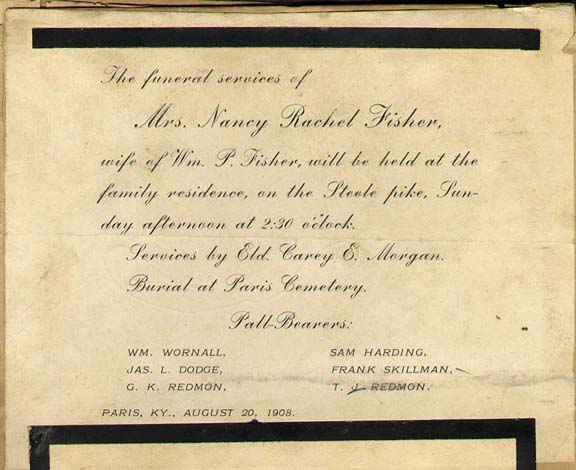 The funeral services of
Mrs. Nancy Rachel Fisher,
wife of Wm. P. Fisher, will be held at the
family residence, on the Steele pike, Sun-
day afternoon at 2:30 o'clock.
Services by Eld. Carey E. Morgan.
Burial at Paris Cemetery.
Pall-Bearers:
WM. WORNALL, SAM HARDING,
JAS. L. DODGE, FRANK SKILLMAN,
G. K. REDMON, T. J. REDMON.
PARIS, KY., AUGUST 20, 1908.